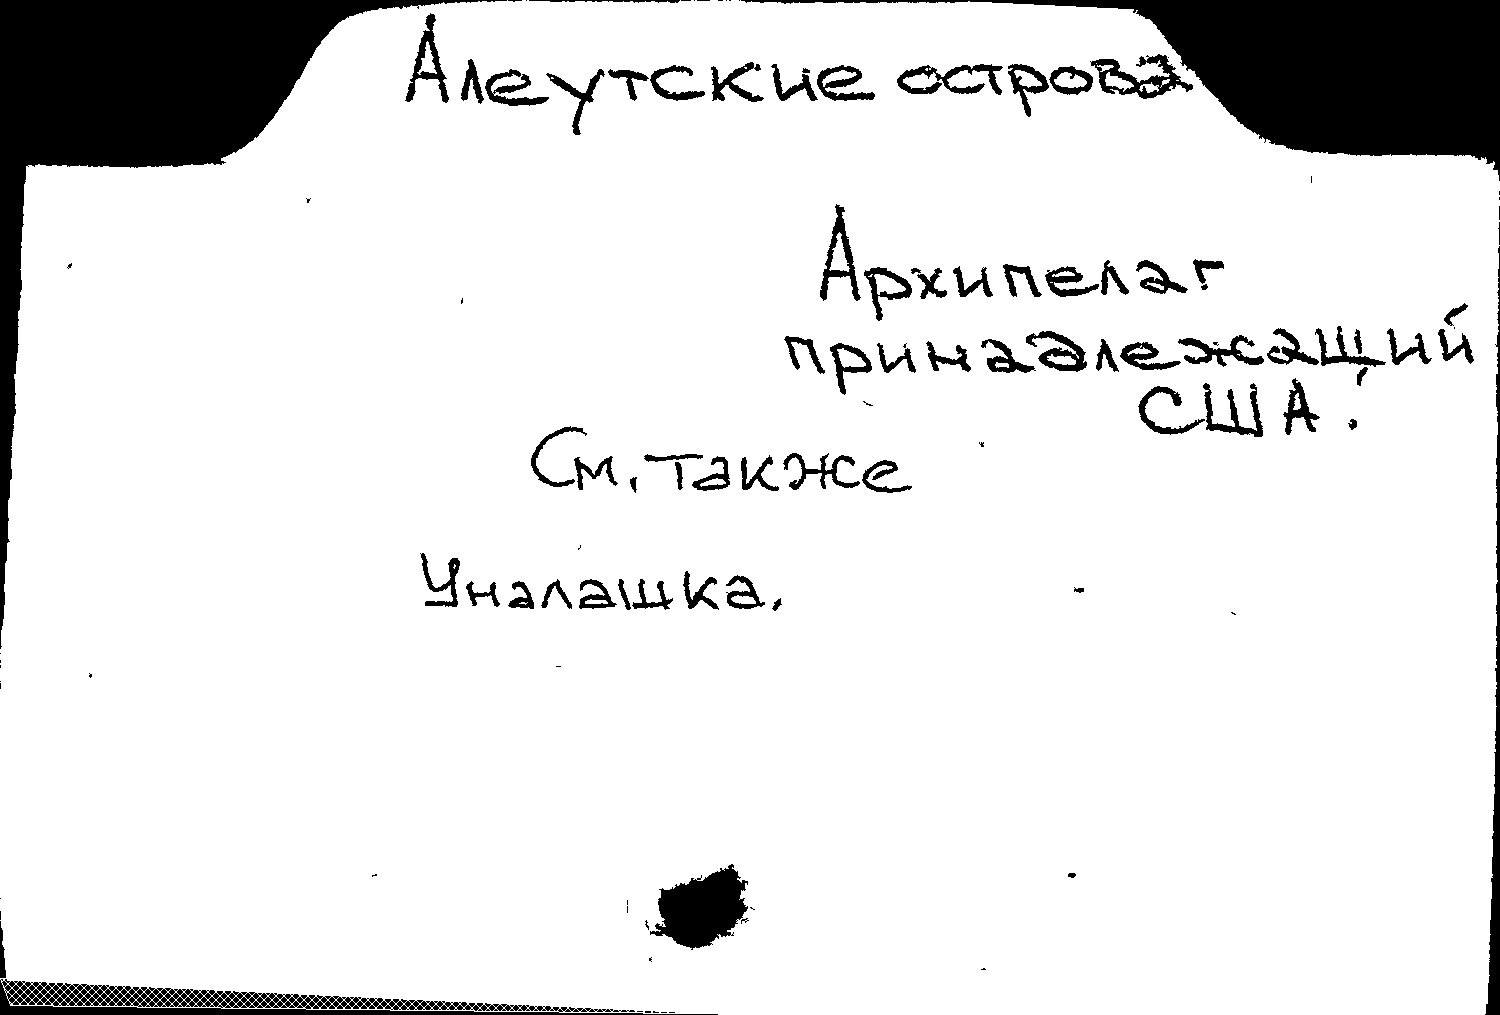 Алеутские острова
Архипелаг
принадлежащий
США.
См. также
Уналашка.